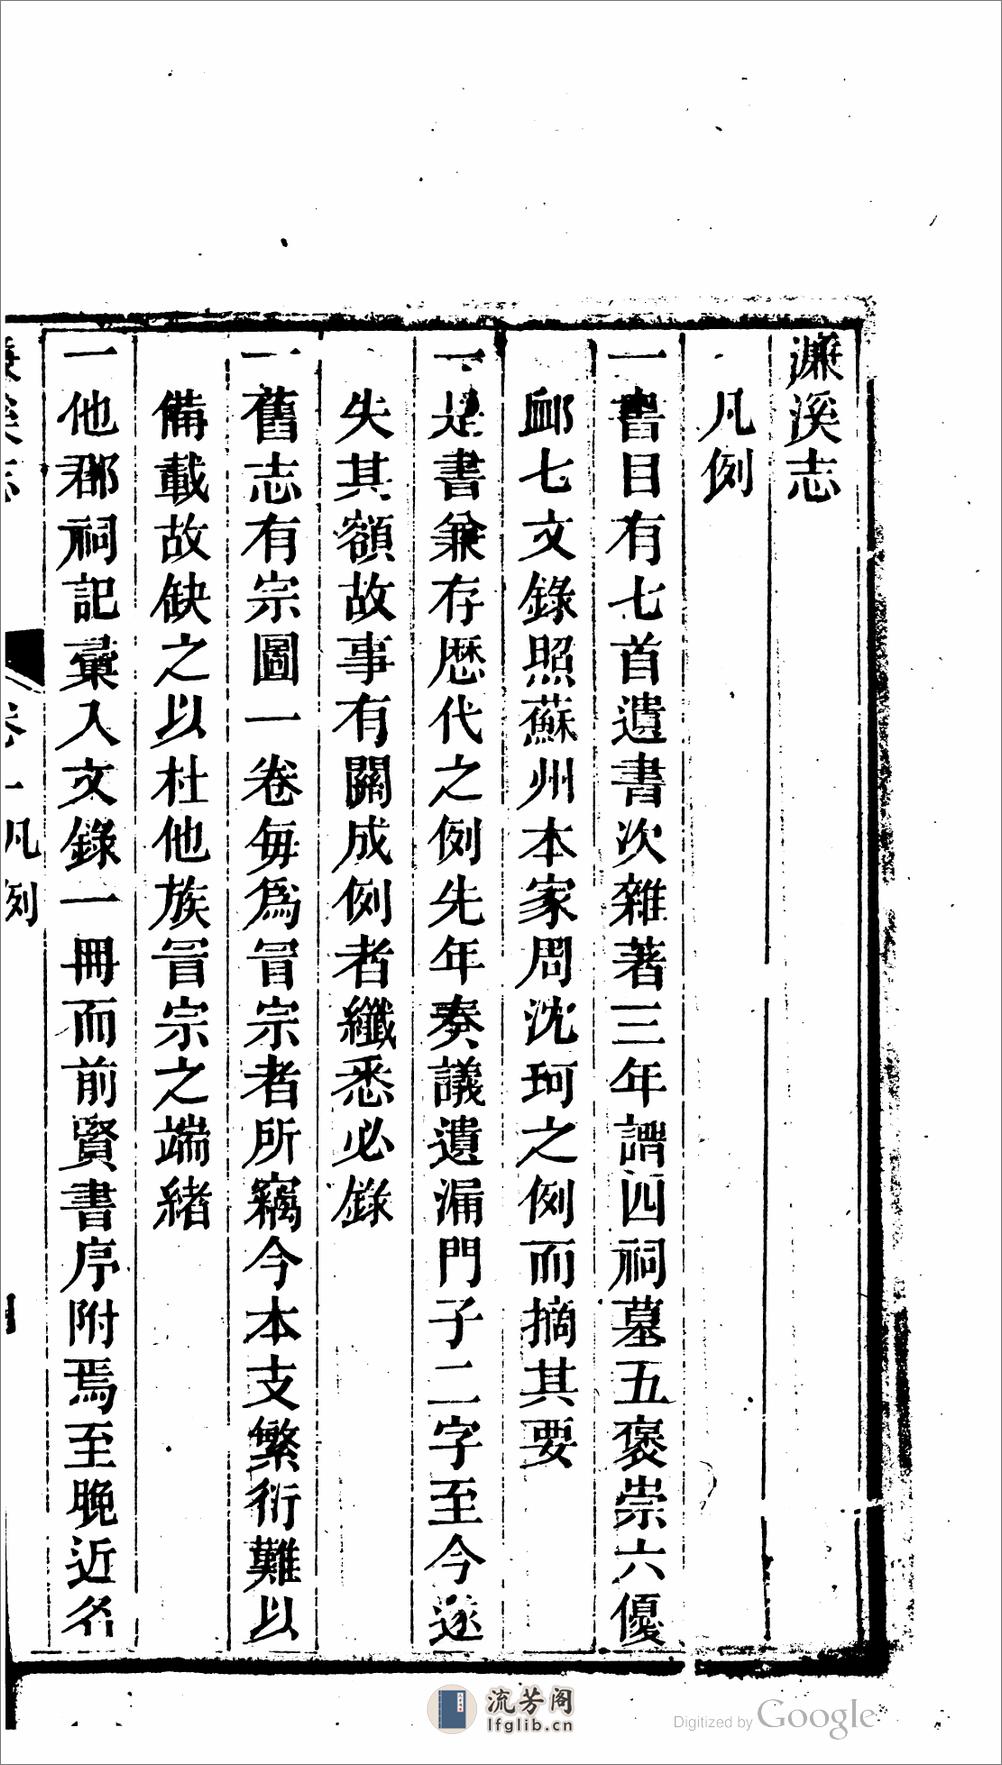 濂溪志
凡例
一書目有七首遺書次雜著三年譜四祠墓五褒崇六優
䘏七文錄照蘇州本家周沈珂之例而摘其要
一是書兼存歴代之例先年奏議遺漏門子二字至今遂
失其額故事有關成例者纖悉必錄
一舊志有宗圖一卷每爲冒宗者所竊今本支繁衍難以
備載故缺之以杜他族冒宗之端緒
一他郡祠記彙入文錄一冊而前賢書序附焉至晚近名
濂溪志
卷一凡例
流芳阁
lfglib.cn
Digitized by Google